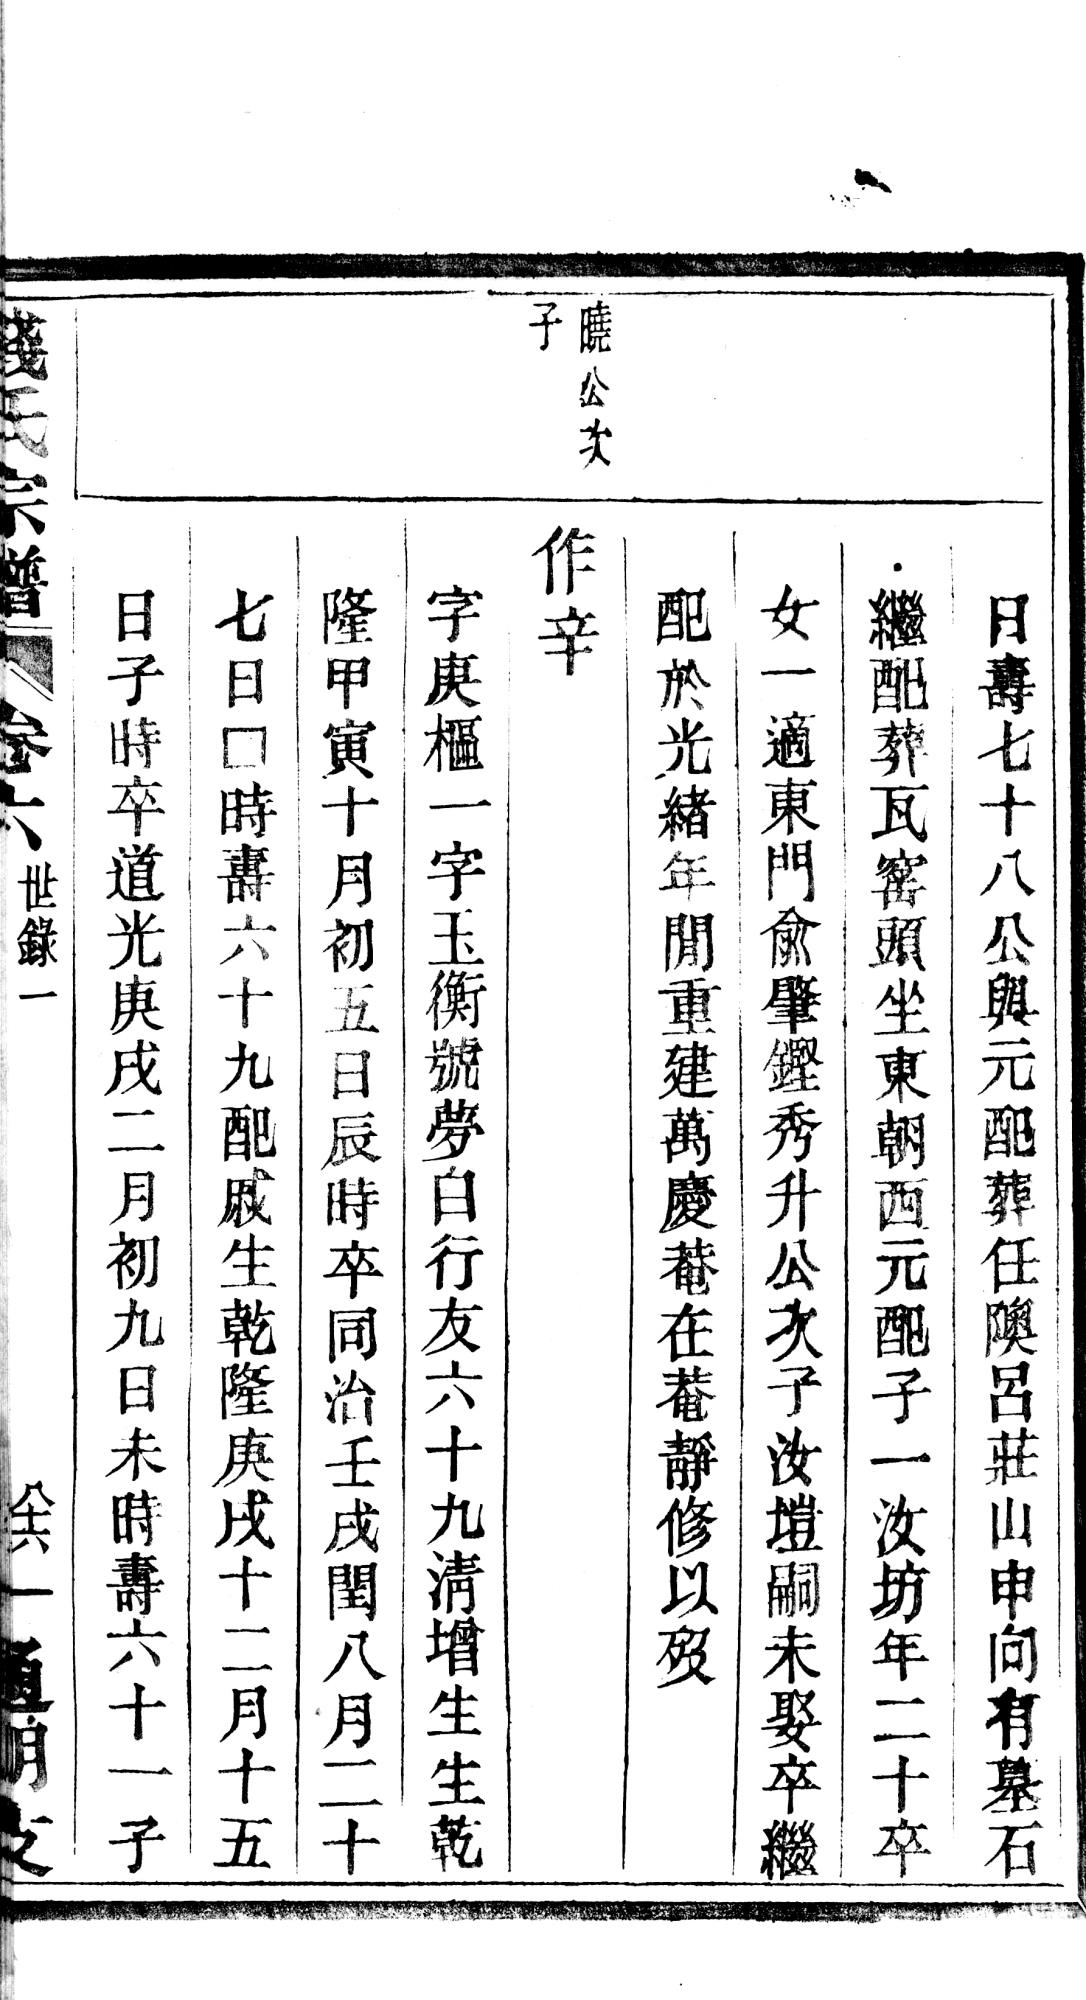 曉公次
子
日壽七十八公與元配葬任隩呂莊山申向有墓石
繼配葬瓦窰頭坐東朝西元配子一汝坊年二十卒
女一適東門俞肇鏗秀升公次子汝塏嗣未娶卒繼
配於光緒年閒重建萬慶菴在菴靜修以歿
作辛
字庚樞一字玉衡號夢白行友六十九淸增生生乾
隆甲寅十月初五日辰時卒同治壬戌閏八月二十
七日□時壽六十九配戚生乾隆庚戌十二月十五
日子時卒道光庚戌二月初九日未時壽六十一子
錢氏宗譜 卷六 世錄一 八十六 通明支